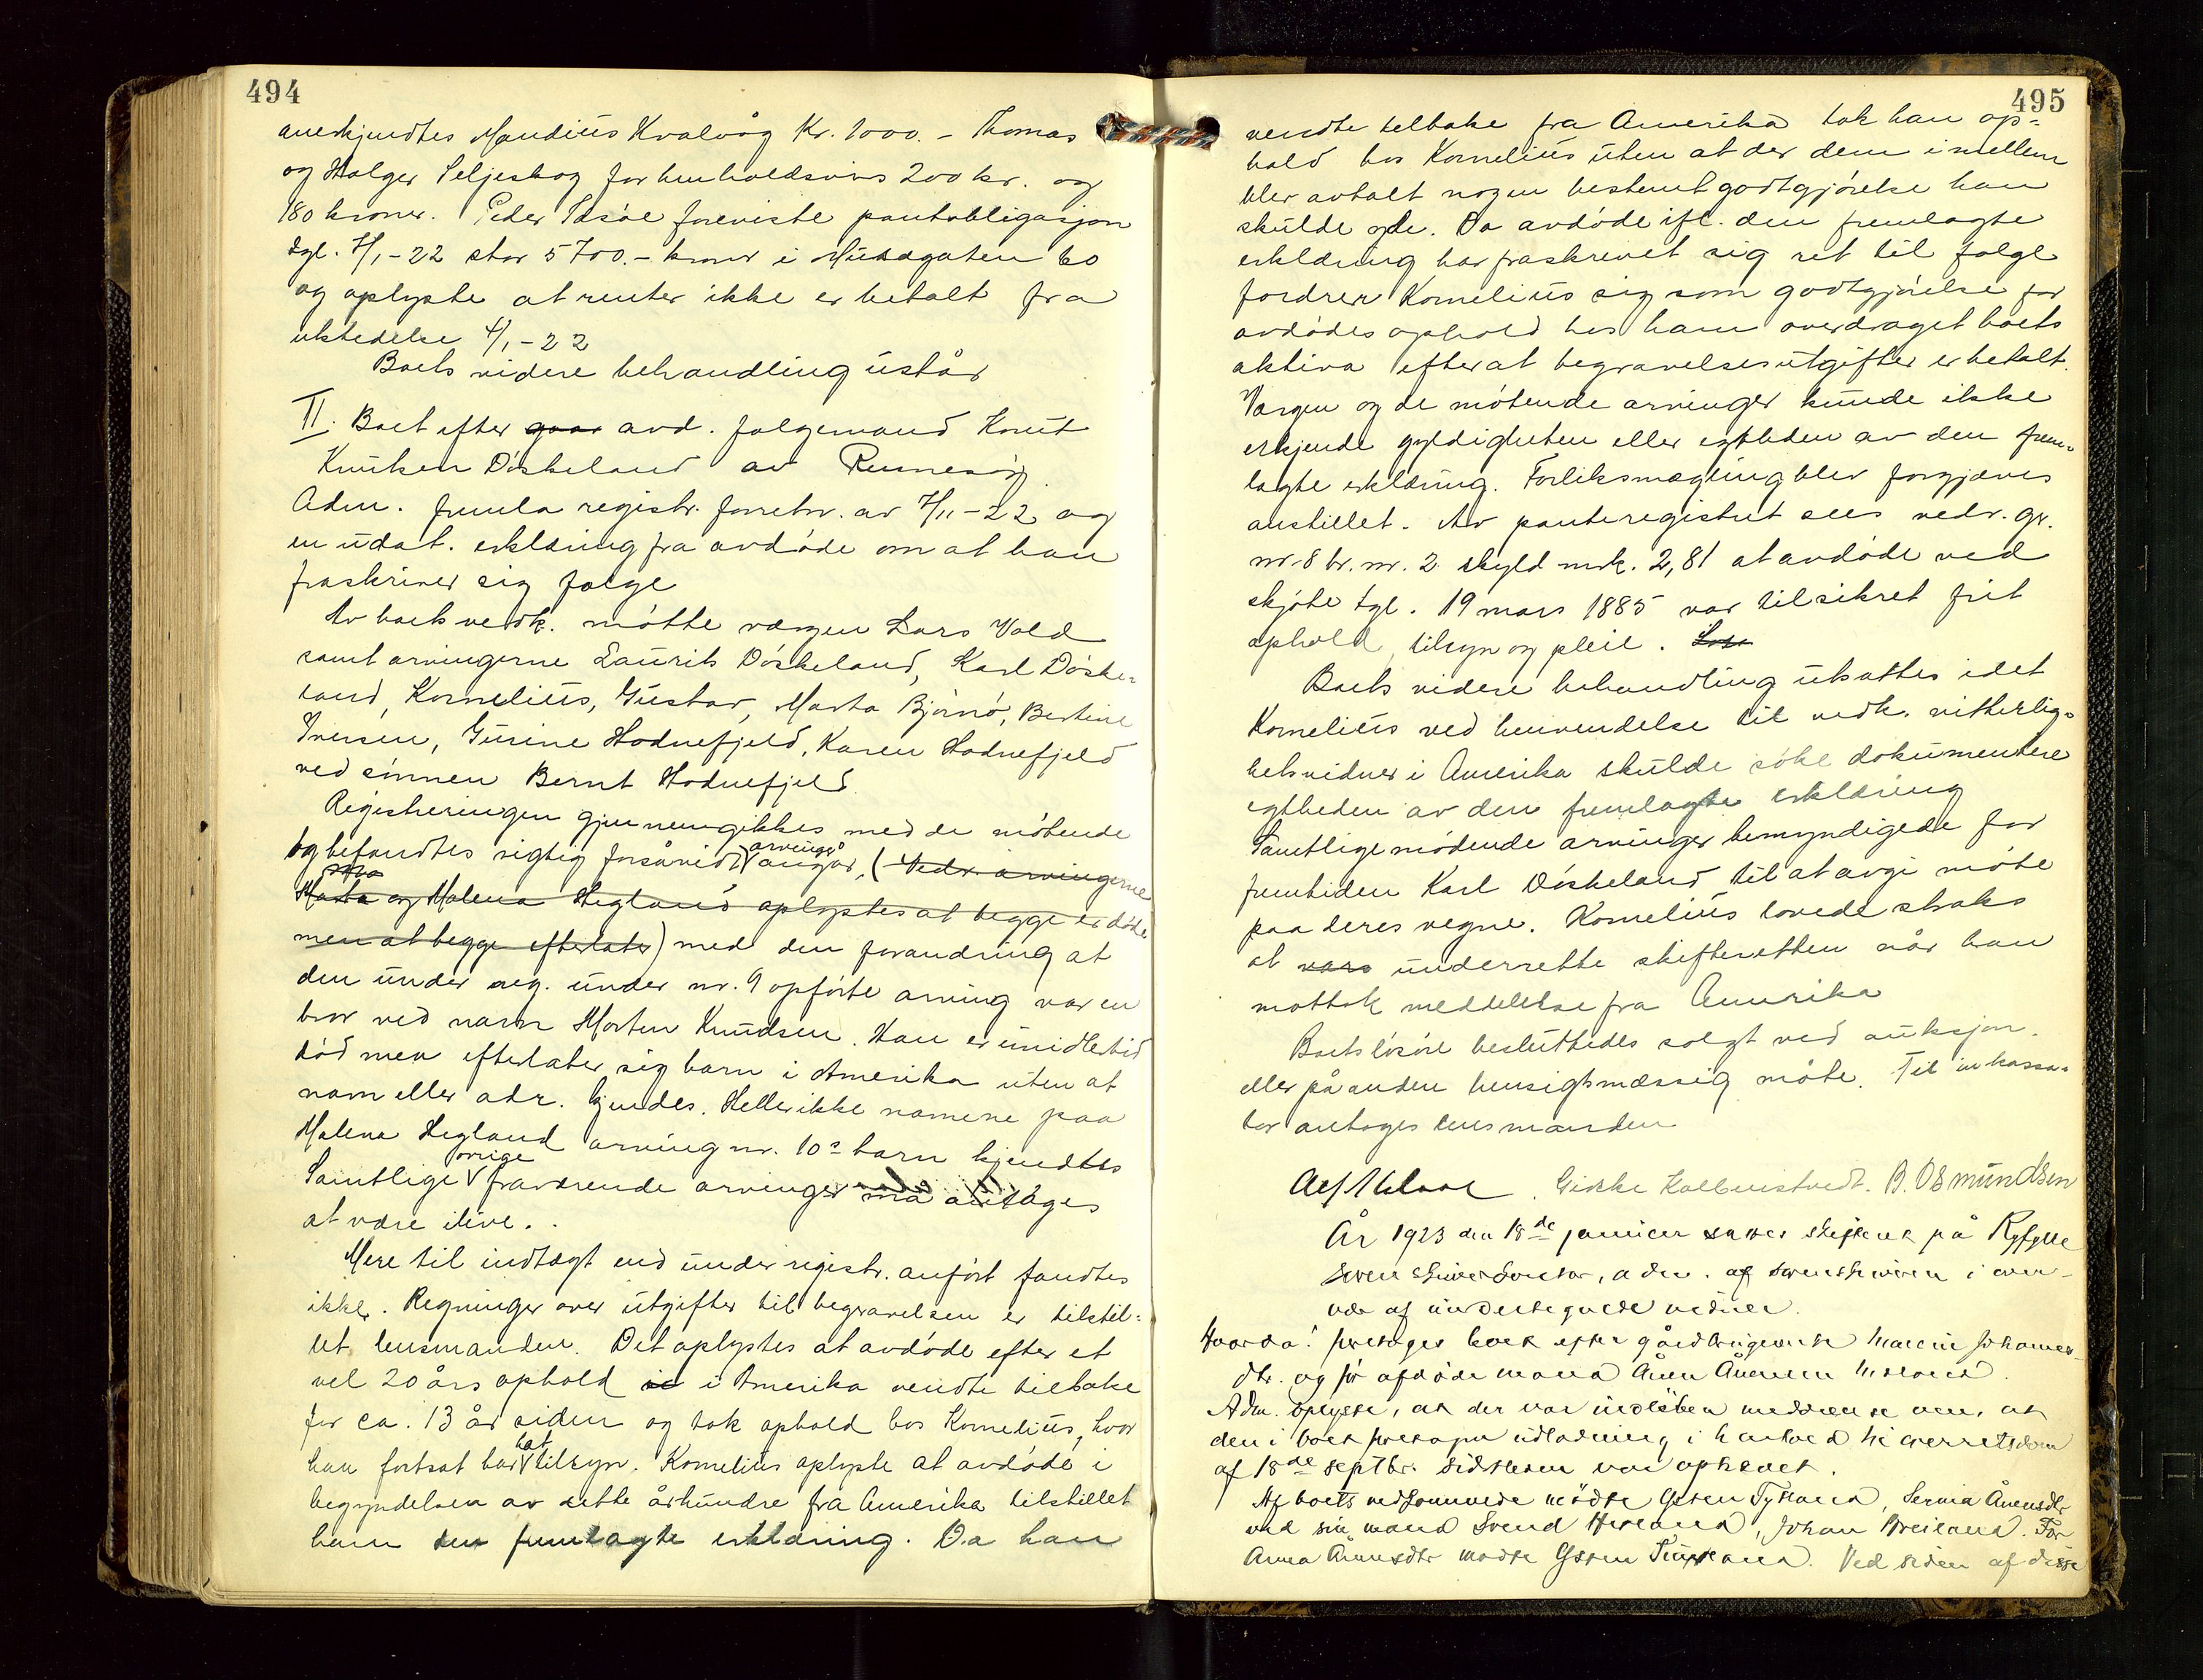 494
anerkjendtes Mandius Kvalvåg Kr. 1000.- Thomas
og Holger Seljeskog forhenholdsvis 200 kr. og
180 kroner. Peder foreviste pantobligasjon
tgl. 7/1-22 stor 5700.- kroner i 60
og oplyste at renter ikke er betalt fra
utstedelse 4/1-22
Boets videre behandling ustår
II. Boet efter avd. folgemand Knut
Knutsen Döskeland av Rennesöy
Adm. fremla registr. forretn. av 7/11-22 og
en udat. erklæring fra avdöde om at han
fraskriver sig folge
Av boets vedk. mötte værgen Lars Vold
samt arvingerne Laurits Döskeland, Karl Döske-
land, Kornelius, Gustav, Marta Bjørnö, Bertine
Iversen, Gurine Hodnefjeld, Karen Hodnefjeld
ved sönnen Bernt Hodnefjeld.
Registreringen gjennemgikkes med de mötende
og befandtes rigtig forsåvidt arvinger angår, (Vedr. arvingerne
Marta og Malena Hegland oplystes at begge er döde
men at begge efterlater) med den forandring at
den under reg. under nr. 9 opförte arving var en
bror ved navn Morten Knudsen. Han er imidlertid
död men efterlater sig barn i Amerika uten at
navn eller adr. kjendes. Heller ikke navnene paa
Malena Hegland arving nr. 10s barn kjendtes
Samtlige övrige fraværende arvinger må antages
at være ilive.
Mere til indtægt end under registr. anfört fandtes
ikke. Regninger over utgifter til begravelsen er tilstil-
let lensmanden. Det oplystes at avdöde efter et
vel 20 års ophold i Amerika vendte tilbake
for ca. 13 år siden og tok ophold hos Kornelius, hvor
han fortsat har hat tilsyn. Kornelius oplyste at avdöde i
begyndelsen av dette århundre fra Amerika tilstillet
ham den fremlagte erklæring. Da han
495
vendte tilbake fra Amerika tok han op-
hold hos Kornelius uten at der dem imellem
blev avtalt nogen bestemt godtgjörelse han
skulde yde. Da avdöde ifl. den fremlagte
erklæring har fraskrevet sig ret til folge
fordrer Kornelius sig som godtgjörelse for
avdödes ophold hos ham overdraget boets
aktiva efter at begravelsesutgifter er betalt.
Værgen og de mötende arvinger kunde ikke
erkjende gyldigheten eller egtheden av den frem-
lagte erklæring. Forliksmægling blev forgjæves
anstillet. Av panteregistret sees vedr. gr.
nr. 8 br. nr. 2 skyld mrk. 2,81 at avdöde ved
skjöte tgl. 19 mars 1885 var tilsikret frit
ophold, tilsyn og pleie.
Boets videre behandling utsattes idet
Kornelius ved henvendelse til vedk. vitterlig-
hetsvidner i Amerika skulde söke dokumentere
egtheden av den fremlagte erklæring
Samtlige mödende arvinger bemyndigede for
fremtiden Karl Döskeland til at avgi möte
paa deres vegne. Kornelius lovede straks
at underrette skifteretten når han
mottok meddelelse fra Amerika
Boets lösöre besluttedes solgt ved auksjon
eller på anden hensigtsmæssig måte. Til inkassa-
tor antoges lensmanden
B. Osmundsen
År 1923 den 18de januar sattes skifteret på Ryfylke
sorenskriverkontor, adm. af sorenskriveren i over-
vær af undertegnede vidner.
foretoges boet efter gårdbrugerenke Johannes-
dtr. og för afdöde mand Ånen Ånensen
Adm. oplyste, at der var indlöben meddelelse om, at
den i boet foretagne udlodning i henhold til overretsdom
af 18de septbr. sidstleden var ophævet.
Af boets vedkommende mödte Serina Ånensdtr
ved sin mand Svend Johan For
Anna Ånensdtr mödte Ved siden af disse